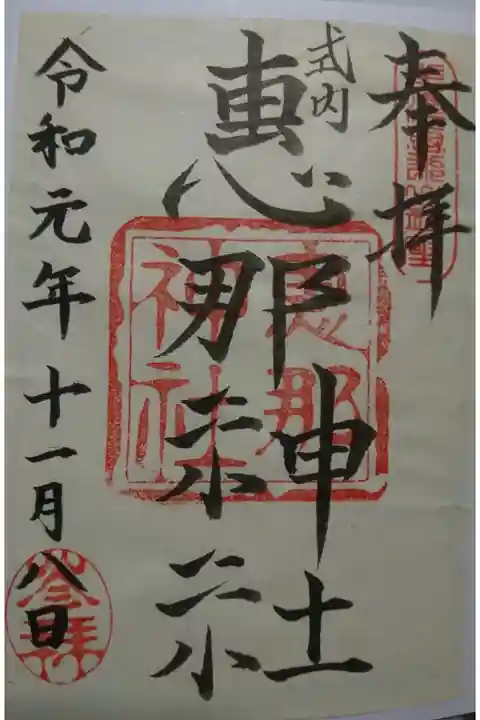 奉拝
式内
恵那神社
恵那
神社
令和元年十一月八日
参拝